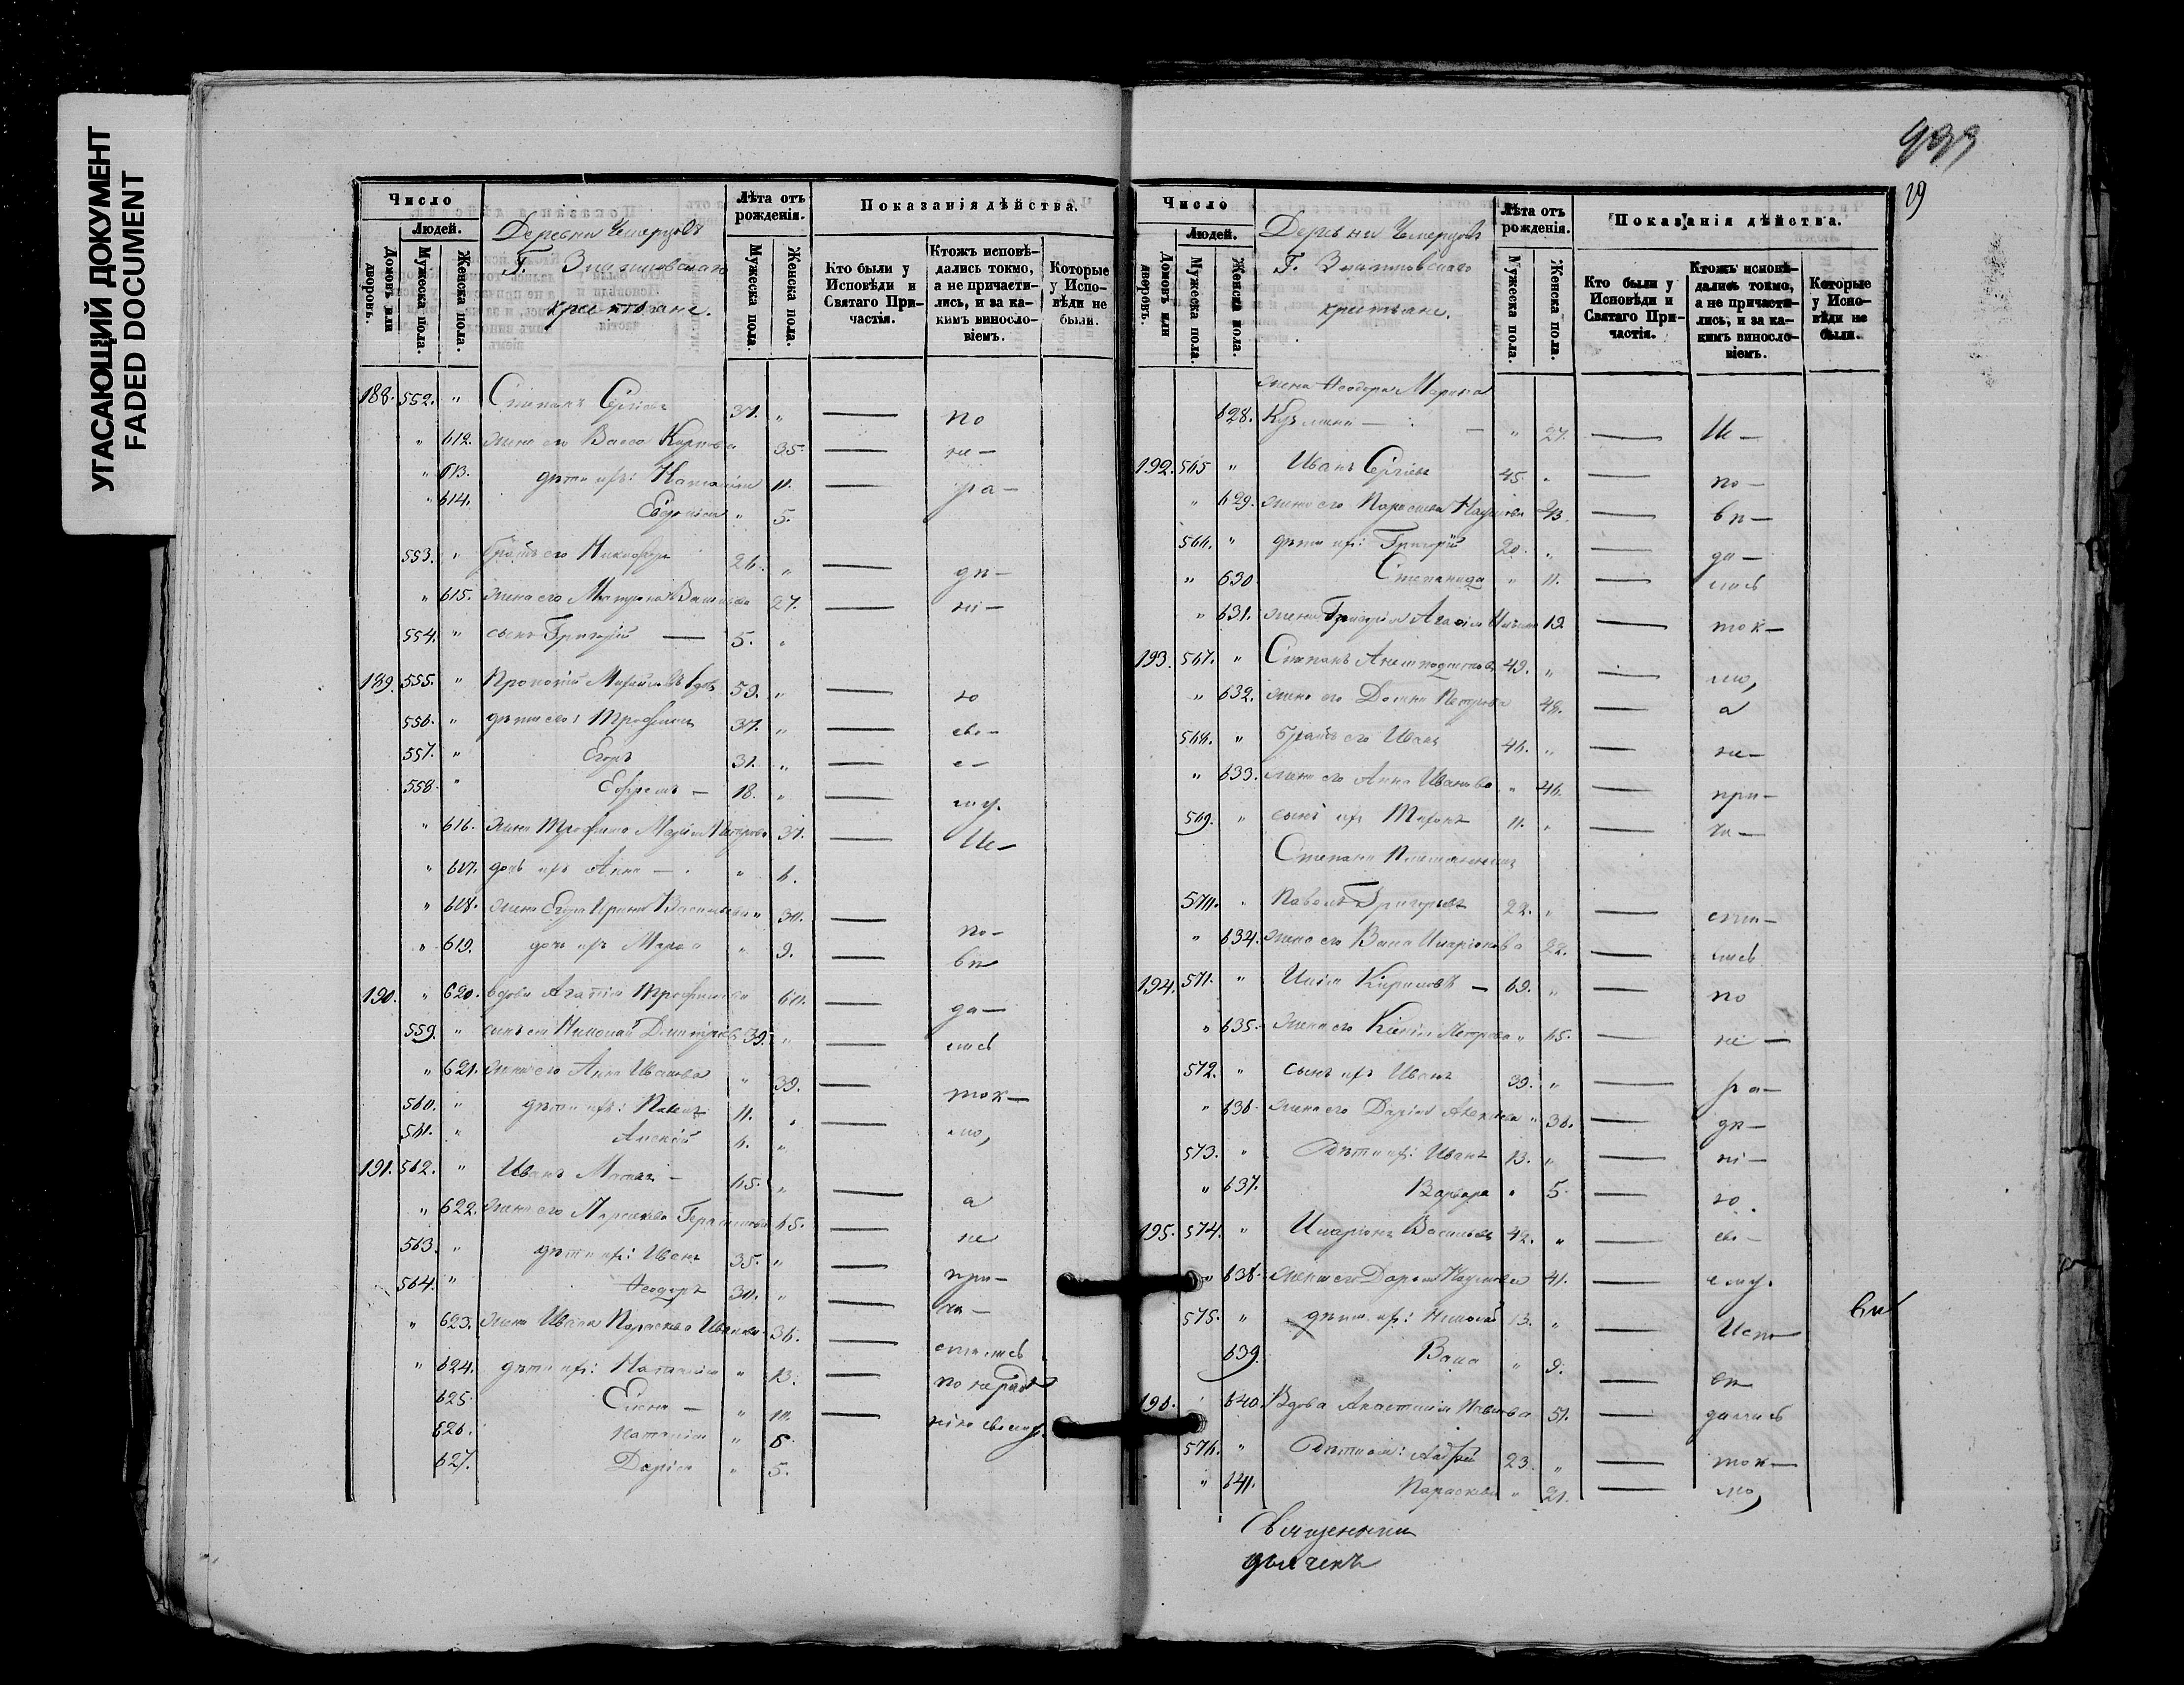 УГАСАЮЩИЙ ДОКУМЕНТ
FADED DOCUMENT
Число
Людей.
Домовъ или дворовъ.
Мужеска пола.
Женска пола.
Деревни
Г.
крестьяне.
Лѣта отъ рожденія.
Мужеска пола.
Женска пола.
Показанія дѣйства.
Кто были у Исповѣди и Святаго Причастія.
Ктожъ исповѣдались токмо, а не причастились, и за какимъ винословіемъ.
Которые у Исповѣди не были.
188. 552. " Степанъ Сергіевъ 37. " — по
" 612. жена его Васса Карпова 35. — не–
" 613. дѣти ихъ: Наталія 11. — ра–
" 614. Евдокія " 5.
553. " братъ его Никифоръ 26. " — дѣ–
" 615. жена его Матрона 27. — ні–
554. " сынъ Григорій — 5. "
189. 555. " Прокопій вдовъ 59. " — ю
556. " дѣти его: Трофимъ 37. " — сво–
557. " Егоръ 31. " — е–
558. " Ефремъ — 18. " — му.
" 616. жена Трофима Марія Петрова 37. — Ис–
" 617. дочь ихъ Анна — " 6.
" 618. жена Егора Ирина Васильева " 30. — по–
" 619. дочь ихъ " 9. — вѣ
190. " 620. вдова Агапія Трофимова 60. — да–
559. " сынъ ея Николай Дмитріевъ 39. " — лись
" 621. жена его Анна Иванова " 39. — ток–
560. " дѣти ихъ: Павелъ 11. " — мо,
561. " Алексій 6. "
191. 562. " Иванъ — 65. " — а
" 622. жена его Параскева Герасимова 65. — не
563. " дѣти ихъ: Иванъ 35. " — при–
564. " Ѳеодоръ 30. " — ча–
" 623. жена Ивана Параскева Иванова 36. — стились
" 624. дѣти ихъ: Наталія " 13. — по нерадѣ
625. Елена — " 10. — нію своему.
626. Наталія " 6.
627. Дарія " 5.
939
29
Число
Людей.
Домовъ или дворовъ.
Мужеска пола.
Женска пола.
Деревни
Г.
крестьяне.
Лѣта отъ рожденія.
Мужеска пола.
Женска пола.
Показанія дѣйства.
Кто были у Исповѣди и Святаго Причастія.
Ктожъ исповѣдались токмо, а не причастились, и за какимъ винословіемъ.
Которые у Исповѣди не были.
жена Ѳеодора Марина
628. Кузмина — — " 27. — Ис–
192. 565 " Иванъ Сергіевъ 45. " — по–
" 629. жена его Параскева Наумова 43. — вѣ–
566. " дѣти ихъ: Григорій 20. " — да–
" 630 Степанида " 11. — лись
" 631. жена Григорія Агафія 19 — ток–
193. 567. " Степанъ 49. " — мо,
" 632. жена его Домна Петрова 48. — а
568. " братъ его Иванъ 46. " — не–
" 633. жена его Анна Иванова " 46. — при–
569. " сынъ ихъ 11. " — ча–
Степана Племянникъ
570. " Павелъ Григорьевъ 22. " — сти–
" 634. жена его Васса Иларіонова 22. — лись
194. 571. " Кириловъ — 69. " — по
" 635. жена его Ксенія Петрова " 65. — не–
572. " сынъ ихъ Иванъ 39. " — ра–
" 636. жена его Дарія " 36. — дѣ–
573. " Дѣти ихъ: Иванъ 13. " — ні–
" 637. Варвара " 5. — ю.
195. 574. " Иларіонъ Васильевъ 42. " — сво–
" 638. жена его Дарія Наумова 41. — ему.
575. " дѣти ихъ: Николай 13. " — Испо
639. Васса " 9. — вѣ
196. 640. Вдова Анастасія 51. — дались
576. " Дѣти ея: Андрей 23. " — ток–
" 641. Параскева " 21. — мо,
Священникъ